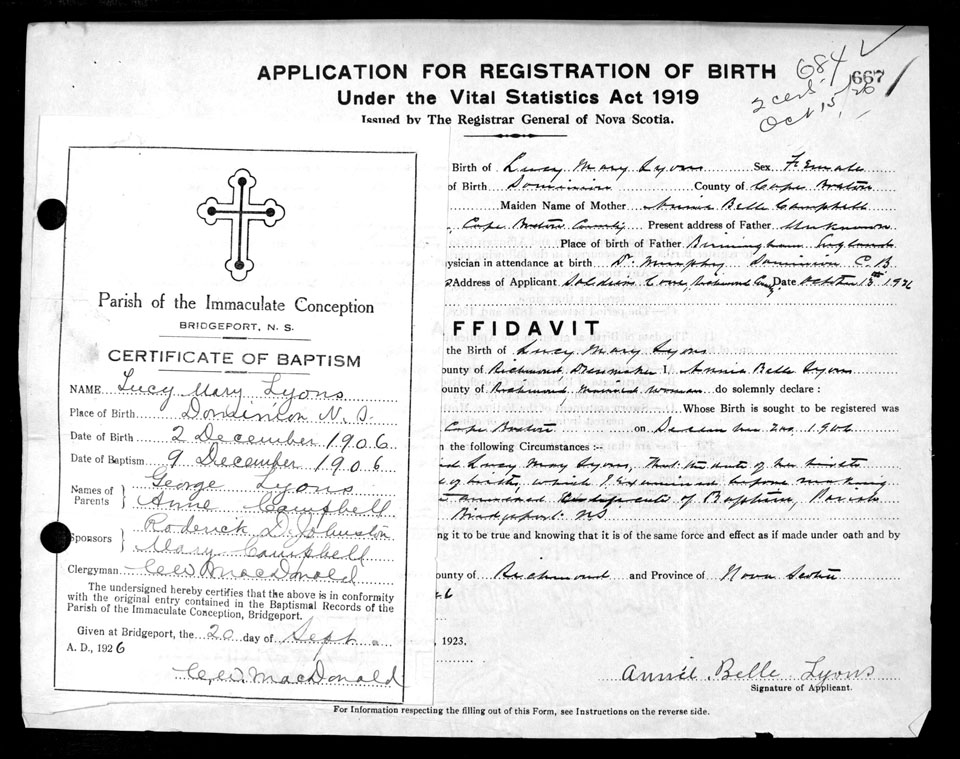 APPLICATION FOR REGISTRATION OF BIRTH
Under the Vital Statistics Act 1919
Issued by The Registrar General of Nova Scotia.
684
667
2 cert.
Oct 15/26
Parish of the Immaculate Conception
BRIDGEPORT, N. S.
CERTIFICATE OF BAPTISM
NAME Lucy Mary Lyons
Place of Birth Dominion N. S.
Date of Birth 2 December 1906
Date of Baptism 9 December 1906
Names of Parents George Lyons
Anne Campbell
Sponsors Roderick D. Johnston
Mary Campbell
Clergyman MacDonald
The undersigned hereby certifies that the above is in conformity
with the original entry contained in the Baptismal Records of the
Parish of the Immaculate Conception, Bridgeport.
Given at Bridgeport, the 20 day of Sept
A. D., 1926
MacDonald
Birth of Lucy Mary Lyons Sex Female
of Birth Dominion County of Cape Breton
Maiden Name of Mother Annie Belle Campbell
Cape Breton County Present address of Father Unknown
Place of birth of Father Birmingham England
ysician in attendance at birth Dr Murphy Dominion C. B.
Address of Applicant Soldiers Cove, Richmond Date October 1926
FFIDAVIT
the Birth of Lucy Mary Lyons
ounty of Richmond, Dressmaker I, Annie Belle Lyons
ounty of Richmond, Married woman do solemnly declare :
Whose Birth is sought to be registered was
Cape Breton on December 2nd, 1906
n the following Circumstances :-
Lucy May Lyons, that the date of her birth
of birth, which I examined before making
of Baptism, Parish
Bridgeport NS
ng it to be true and knowing that it is of the same force and effect as if made under oath and by
ounty of Richmond and Province of Nova Scotia
6
, 1923.
Annie Belle Lyons
Signature of Applicant.
For Information respecting the filling out of this Form, see Instructions on the reverse side.